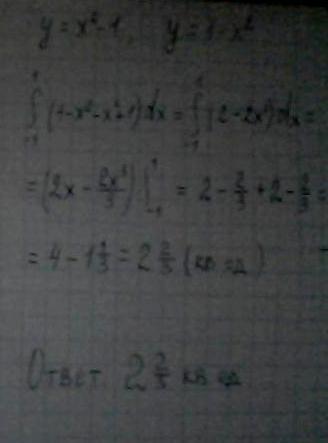 y = x² - 1, y = 1 - x²
∫₋₁¹ (1 - x² - x² + 1) dx = ∫₋₁¹ (2 - 2x²) dx =
= (2x - 2x³/3) |₋₁¹ = 2 - 2/3 + 2 - 2/3 =
= 4 - 1 1/3 = 2 2/3 (кв. ед.)
Ответ 2 2/3 кв. ед.